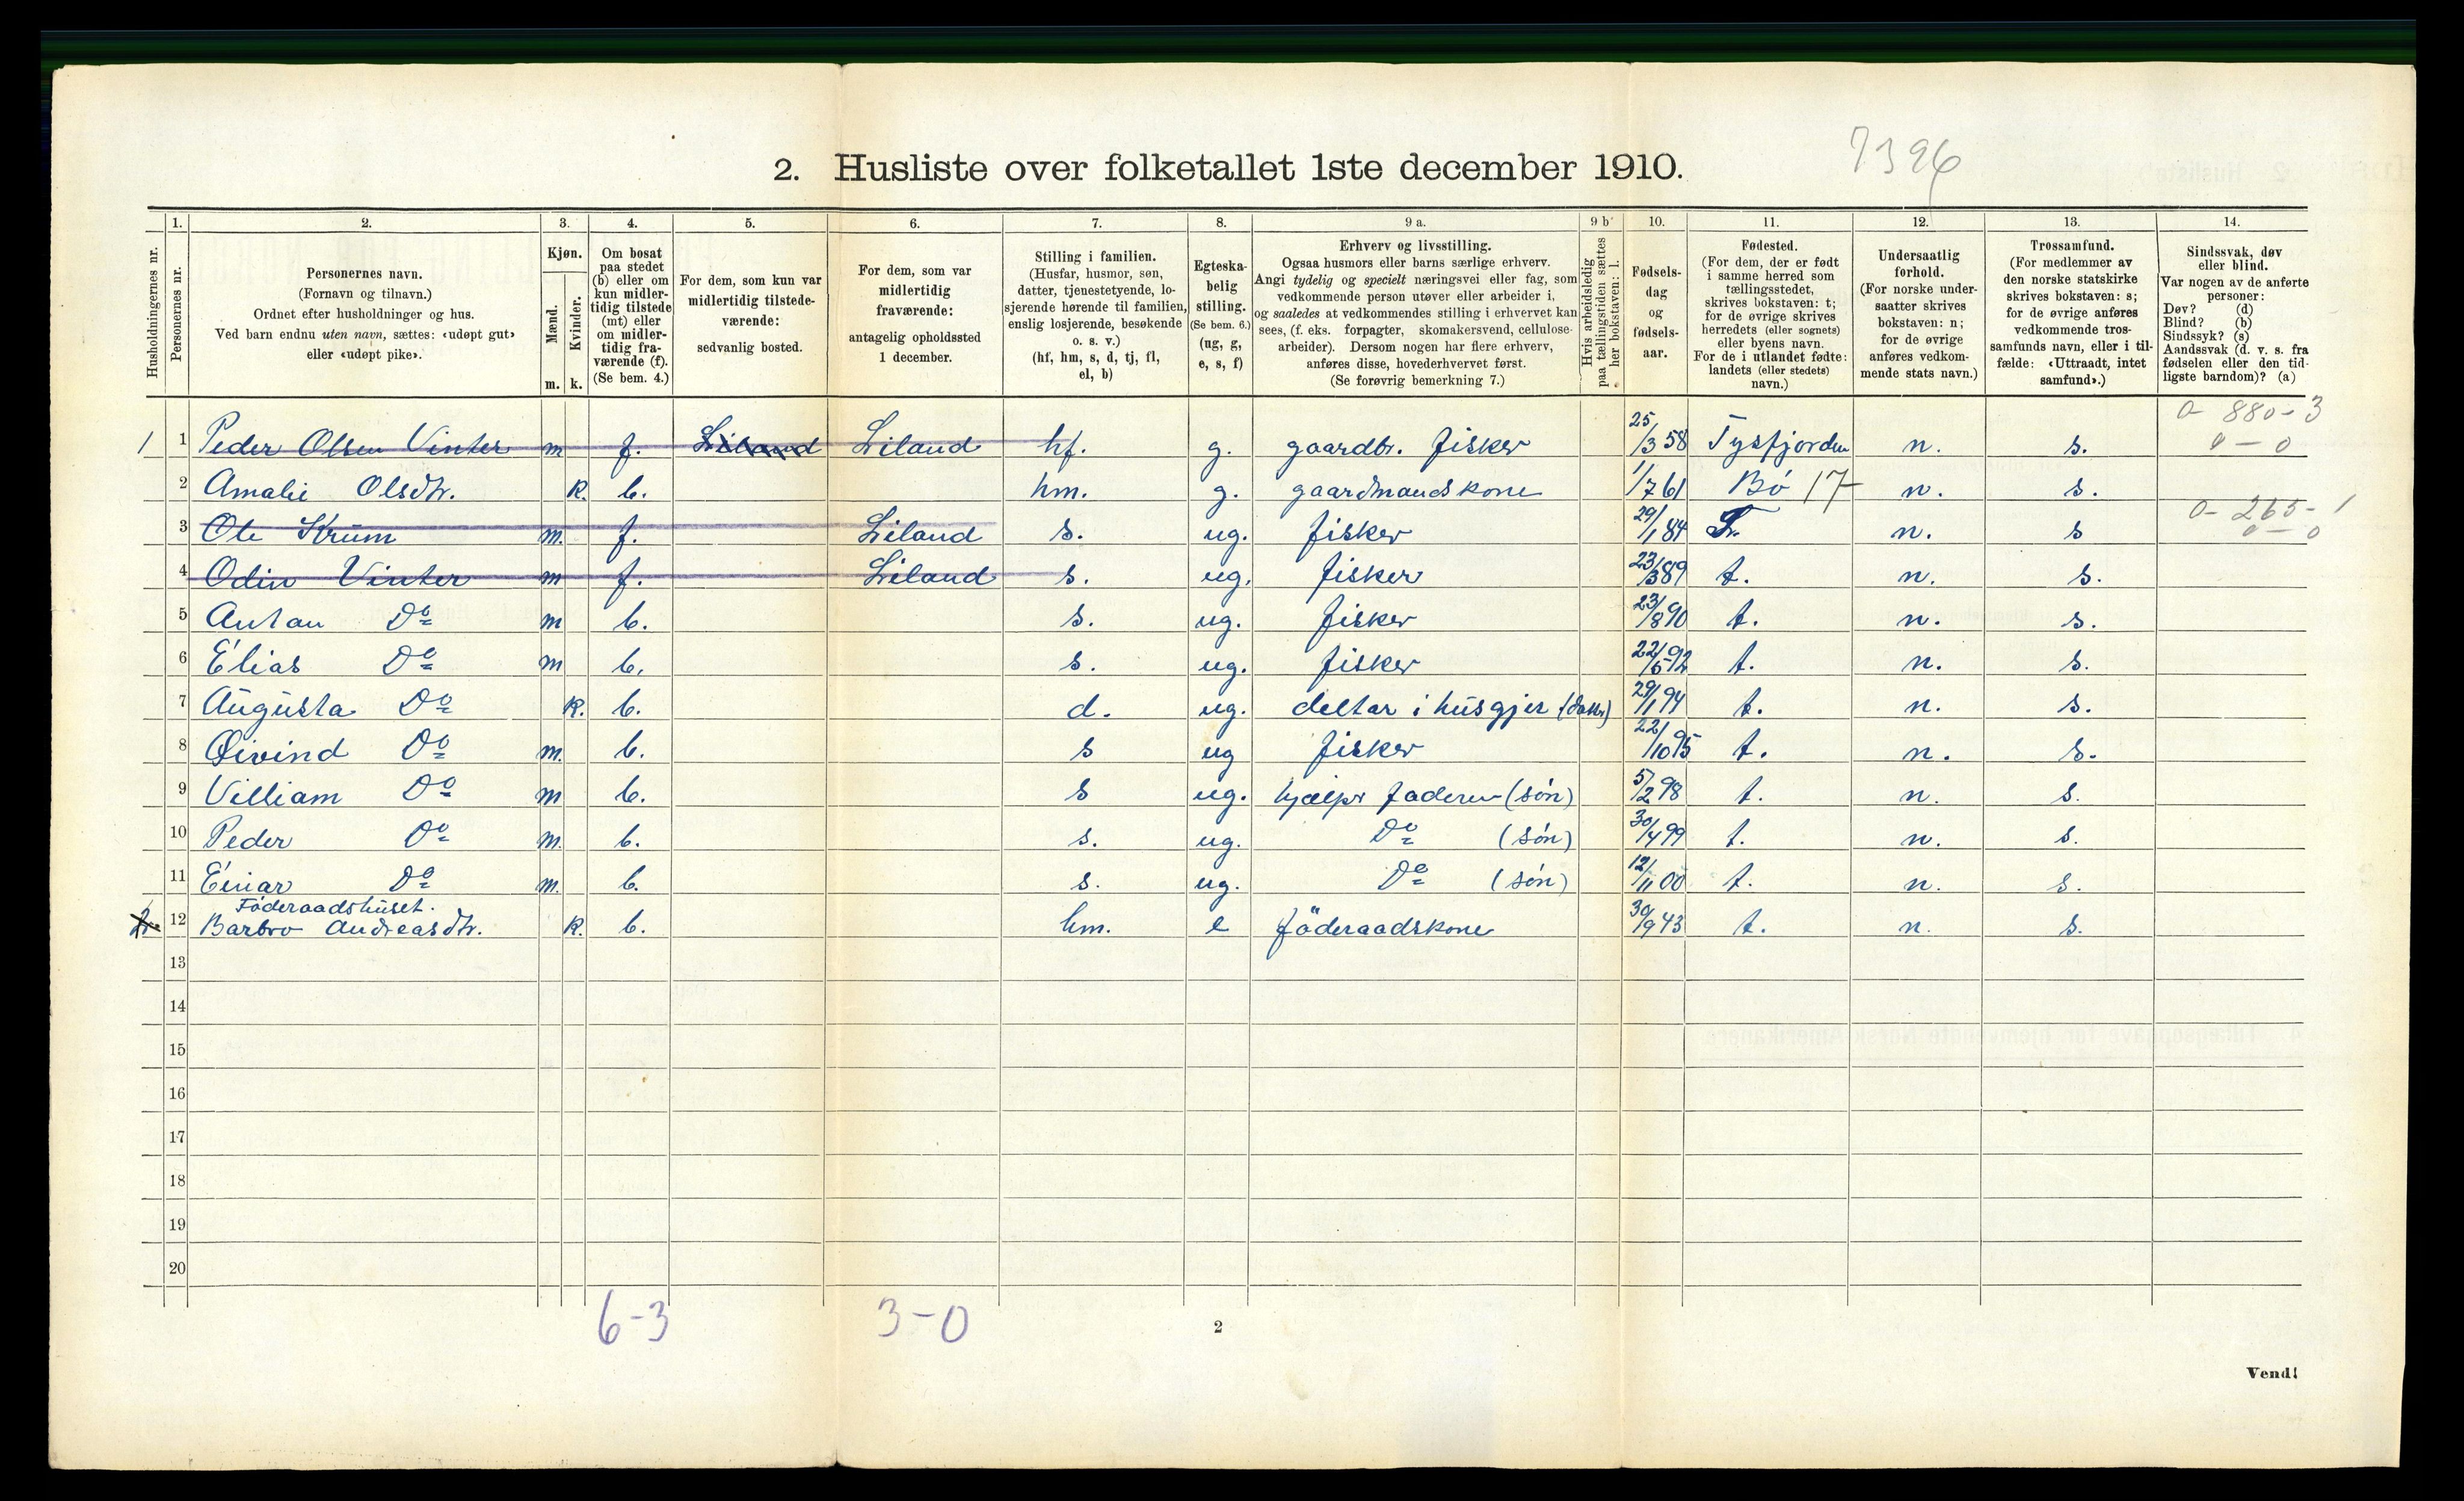 7396
2. Husliste over folketallet 1ste december 1910.
Husholdningernes nr.
1.
Personernes nr.
2.
Personernes navn.
(Fornavn og tilnavn.)
Ordnet efter husholdninger og hus.
Ved barn endnu uten navn, sættes: «udøpt gut»
eller «udøpt pike».
3.
Kjøn.
Mænd.
Kvinder.
m. k.
4.
Om bosat
paa stedet
(b) eller om
kun midler-
tidig tilstede
(mt) eller
om midler-
tidig fra-
værende (f).
(Se bem. 4.)
5.
For dem, som kun var
midlertidig tilstede-
værende:
sedvanlig bosted.
6.
For dem, som var
midlertidig
fraværende:
antagelig opholdssted
1 december.
7.
Stilling i familien.
(Husfar, husmor, søn,
datter, tjenestetyende, lo-
sjerende hørende til familien,
enslig losjerende, besøkende
o. s. v.)
(hf, hm, s, d, tj, fl,
el, b)
8.
Egteska-
belig
stilling.
(Se bem. 6.)
(ug, g,
e, s, f)
9 a.
Erhverv og livsstilling.
Ogsaa husmors eller barns særlige erhverv.
Angi tydelig og specielt næringsvei eller fag, som
vedkommende person utøver eller arbeider i,
og saaledes at vedkommendes stilling i erhvervet kan
sees, (f. eks. forpagter, skomakersvend, cellulose-
arbeider). Dersom nogen har flere erhverv,
anføres disse, hovederhvervet først.
(Se forøvrig bemerkning 7.)
9 b
Hvis arbeidsledig
paa tællingstiden sættes
her bokstaven: l.
10.
Fødsels-
dag
og
fødsels-
aar.
11.
Fødested.
(For dem, der er født
i samme herred som
tællingsstedet,
skrives bokstaven: t;
for de øvrige skrives
herredets (eller sognets)
eller byens navn.
For de i utlandet fødte:
landets (eller stedets)
navn.)
12.
Undersaatlig
forhold.
(For norske under-
saatter skrives
bokstaven: n;
for de øvrige
anføres vedkom-
mende stats navn.)
13.
Trossamfund.
(For medlemmer av
den norske statskirke
skrives bokstaven: s;
for de øvrige anføres
vedkommende tros-
samfunds navn, eller i til-
fælde: «Uttraadt, intet
samfund».)
14.
Sindssvak, døv
eller blind.
Var nogen av de anførte
personer:
Døv? (d)
Blind? (b)
Sindssyk? (s)
Aandssvak (d. v. s. fra
fødselen eller den tid-
ligste barndom)? (a)
0-880-3
0-0
1 1 Peder Olsen Vinter m f. Liland Liland hf. g. gaardbr. fisker 25/3 58 Tysfjorden n. s.
2 Amalie Olsdtr. k. b. hm. g. gaardmandskone 1/7 61 Bø 17 n. s.
0-265-1
0-0
3 Ole Krum m. f. Liland s. ug. fisker 29/1 84 n. s
4 Odin Vinter m f. Liland s. ug. fisker 23/3 89 t. n. s.
5 Antan Do m b. s. ug. fisker 23/8 90 t. n. s.
6 Elias Do m b. s. ug. fisker 22/5 92 t. n. s.
7 Augusta Do k. b. d. ug. deltar i husgjer (datter) 29/1 94 t. n. s.
8 Øivind Do m. b. s ug fisker 22/10 95 t. n. s.
9 Villiam Do m b. s ug. hjælpr faderen (søn) 5/2 98 t. n. s.
10 Peder Do m. b. s. ug. Do (søn) 30/4 99 t. n. s.
11 Einar Do m. b. s. ug. Do (søn) 12/11 00 t. n. s.
Føderaadshuset.
2. 12 Barbro Andreasdtr. k. b. hm. e føderaadskone 30/9 43 t. n. s.
13
14
15
16
17
18
19
20
6-3 3-0
2
Vend!